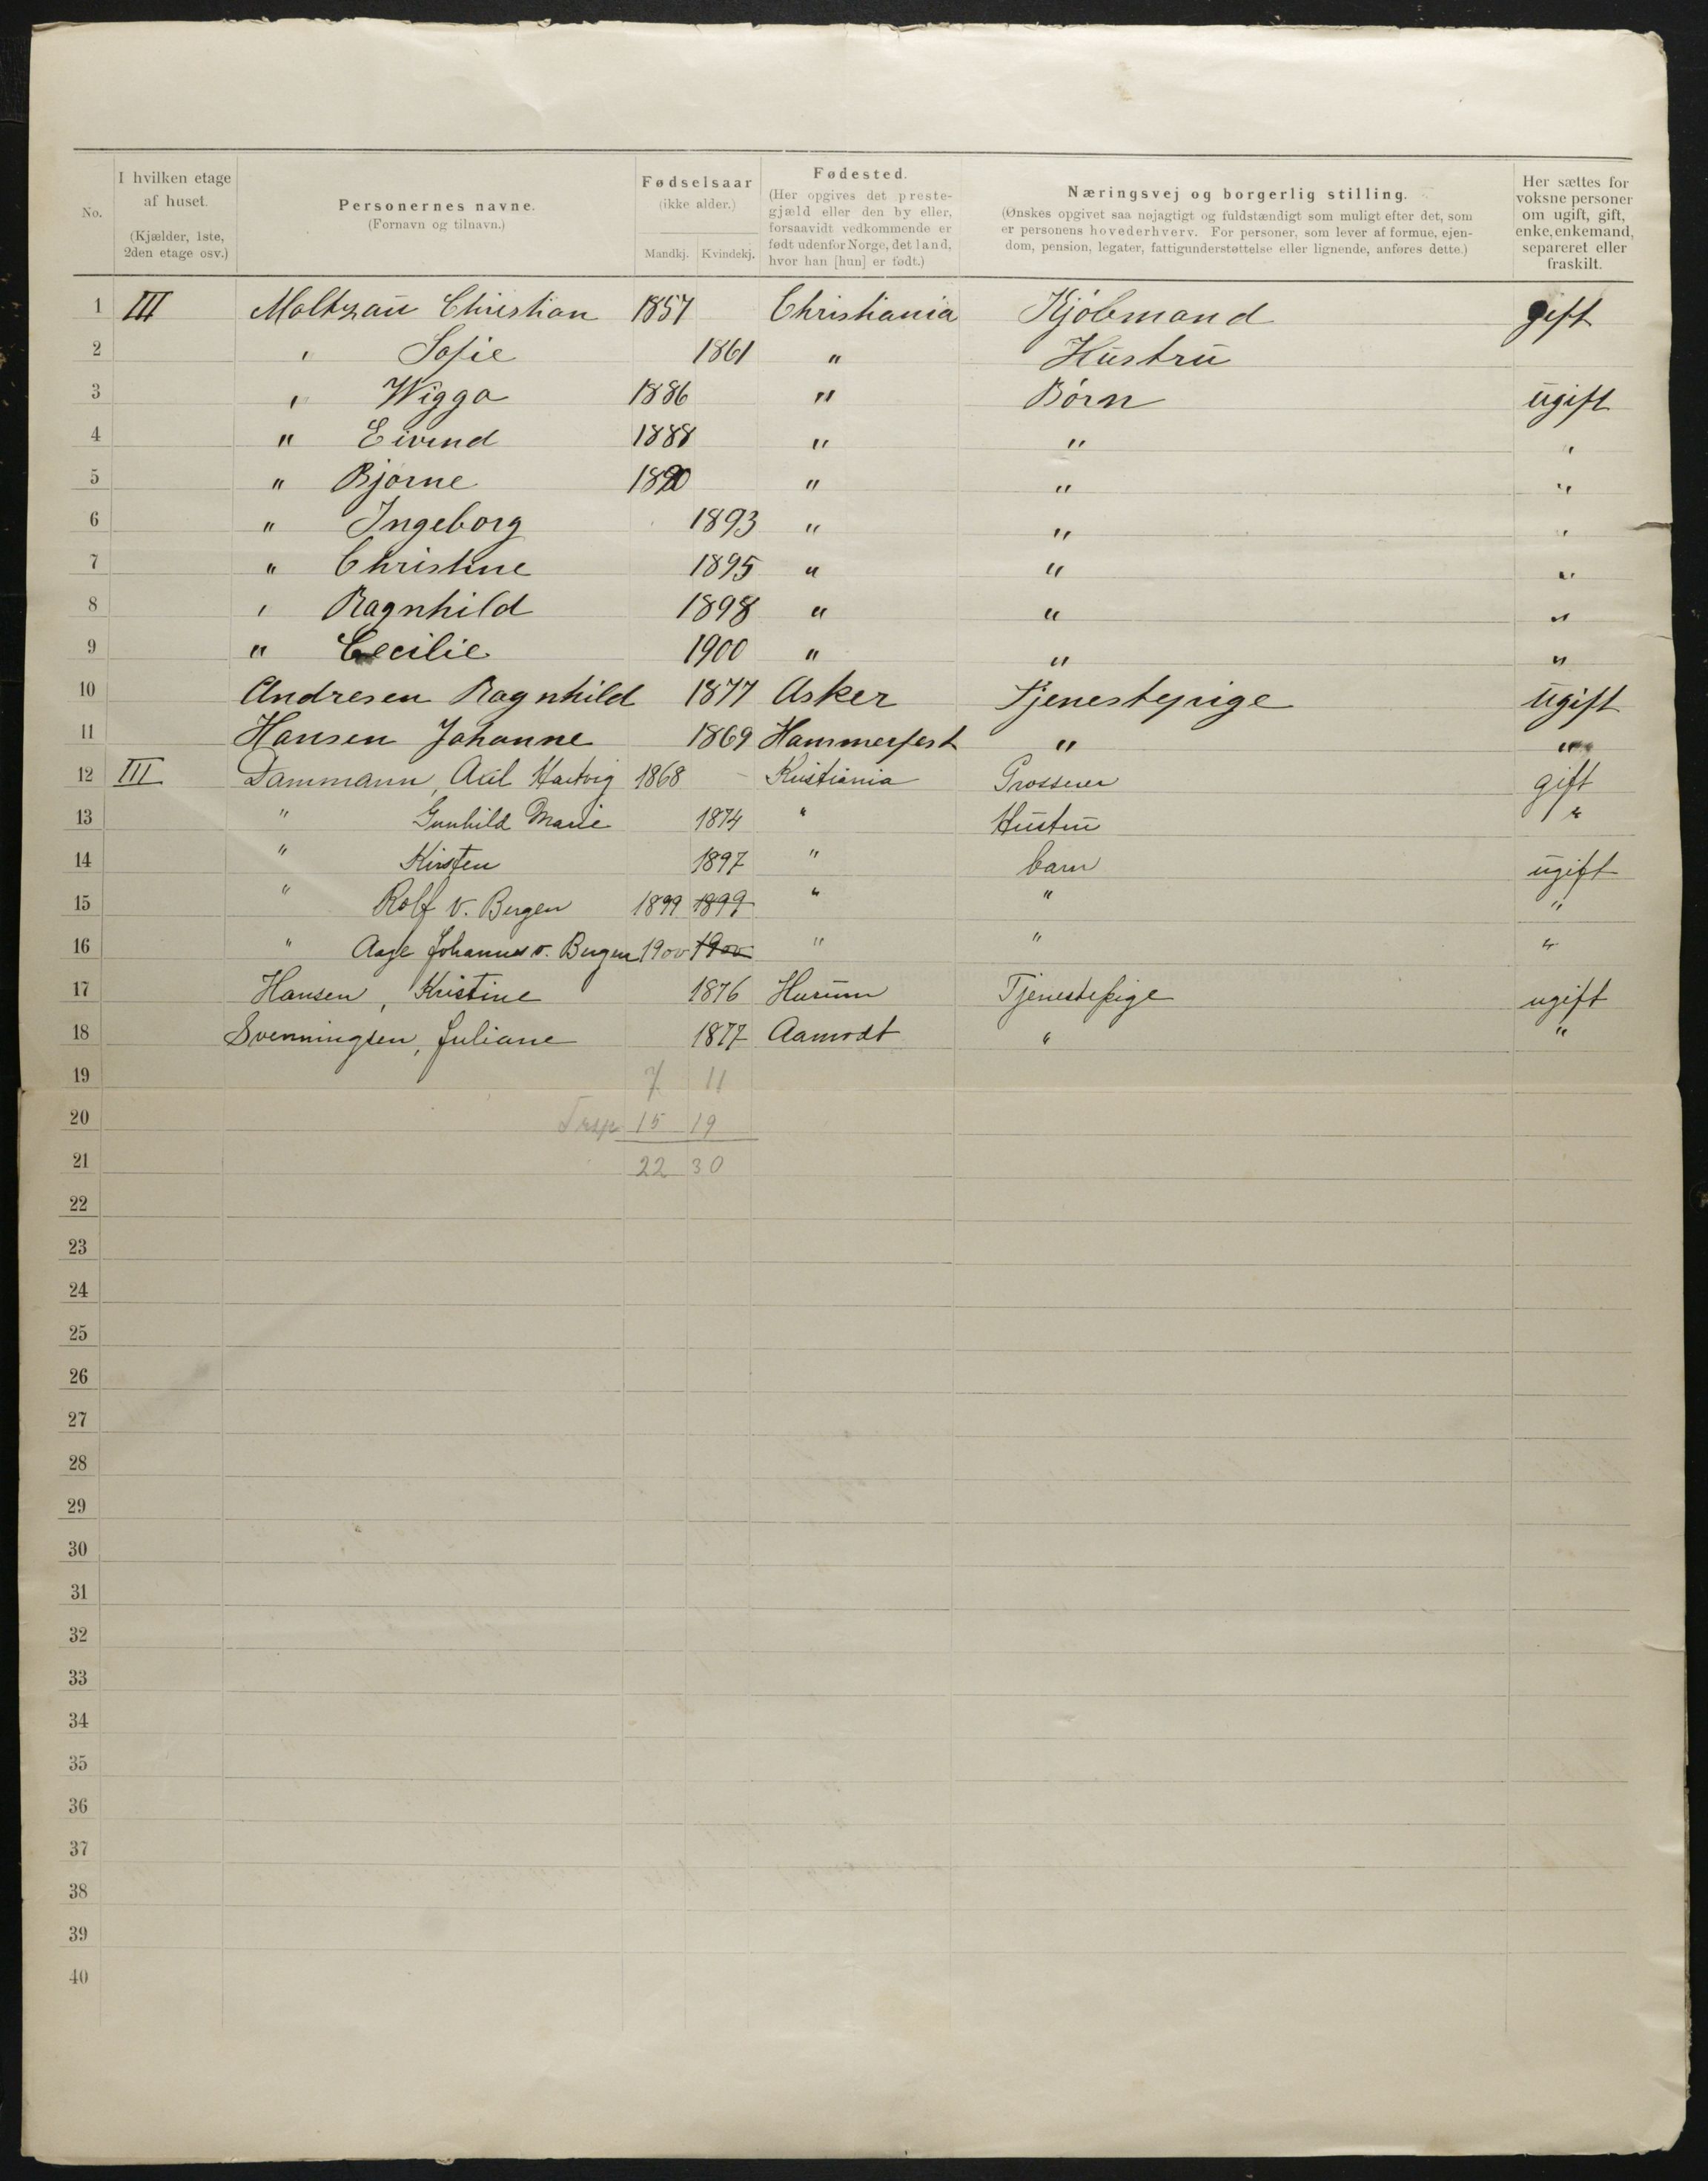 No. | I hvilken etage af huset. (Kjælder, 1ste, 2den etage osv.) | Personernes navne. (Fornavn og tilnavn.) | Fødselsaar (ikke alder.) Mandkj. | Kvindekj. | Fødested. (Her opgives det prestegjæld eller den by eller, forsaavidt vedkommende er født udenfor Norge, det land, hvor han [hun] er født.) | Næringsvej og borgerlig stilling. (Ønskes opgivet saa nøjagtigt og fuldstændigt som muligt efter det, som er personens hovederhverv. For personer, som lever af formue, ejendom, pension, legater, fattigunderstøttelse eller lignende, anføres dette.) | Her sættes for voksne personer om ugift, gift, enke, enkemand, separeret eller fraskilt.
1 III Maltzau Christian 1857 Christiania Kjøbmand gift
2 " Sofie 1861 " Hustru
3 " Wiggo 1886 " Børn ugift
4 " Eivind 1888 " " "
5 " Bjarne 1890 " " "
6 " Ingeborg 1893 " " "
7 " Christine 1895 " " "
8 " Ragnhild 1898 " " "
9 " Cecilie 1900 " " "
10 Andresen Ragnhild 1877 Asker Tjenestepige ugift
11 Hansen Johanne 1869 Hammerfest " "
12 III Dammann, Axil Hartvig 1868 Kristiania Grosserer gift
13 " Gunhild Marie 1874 " Hustru "
14 " Kirsten 1897 " barn ugift
15 " Rolf v. Bergen 1899 1899 " " "
16 " Aage Johannes v. Bergen 1900 1900 " " "
17 Hansen, Kristine 1876 Hurum Tjenestepige ugift
18 Svenningsen, Juliane 1877 Aamodt " "
19 7 11
20 Trsp 15 19
21 22 30
22
23
24
25
26
27
28
29
30
31
32
33
34
35
36
37
38
39
40